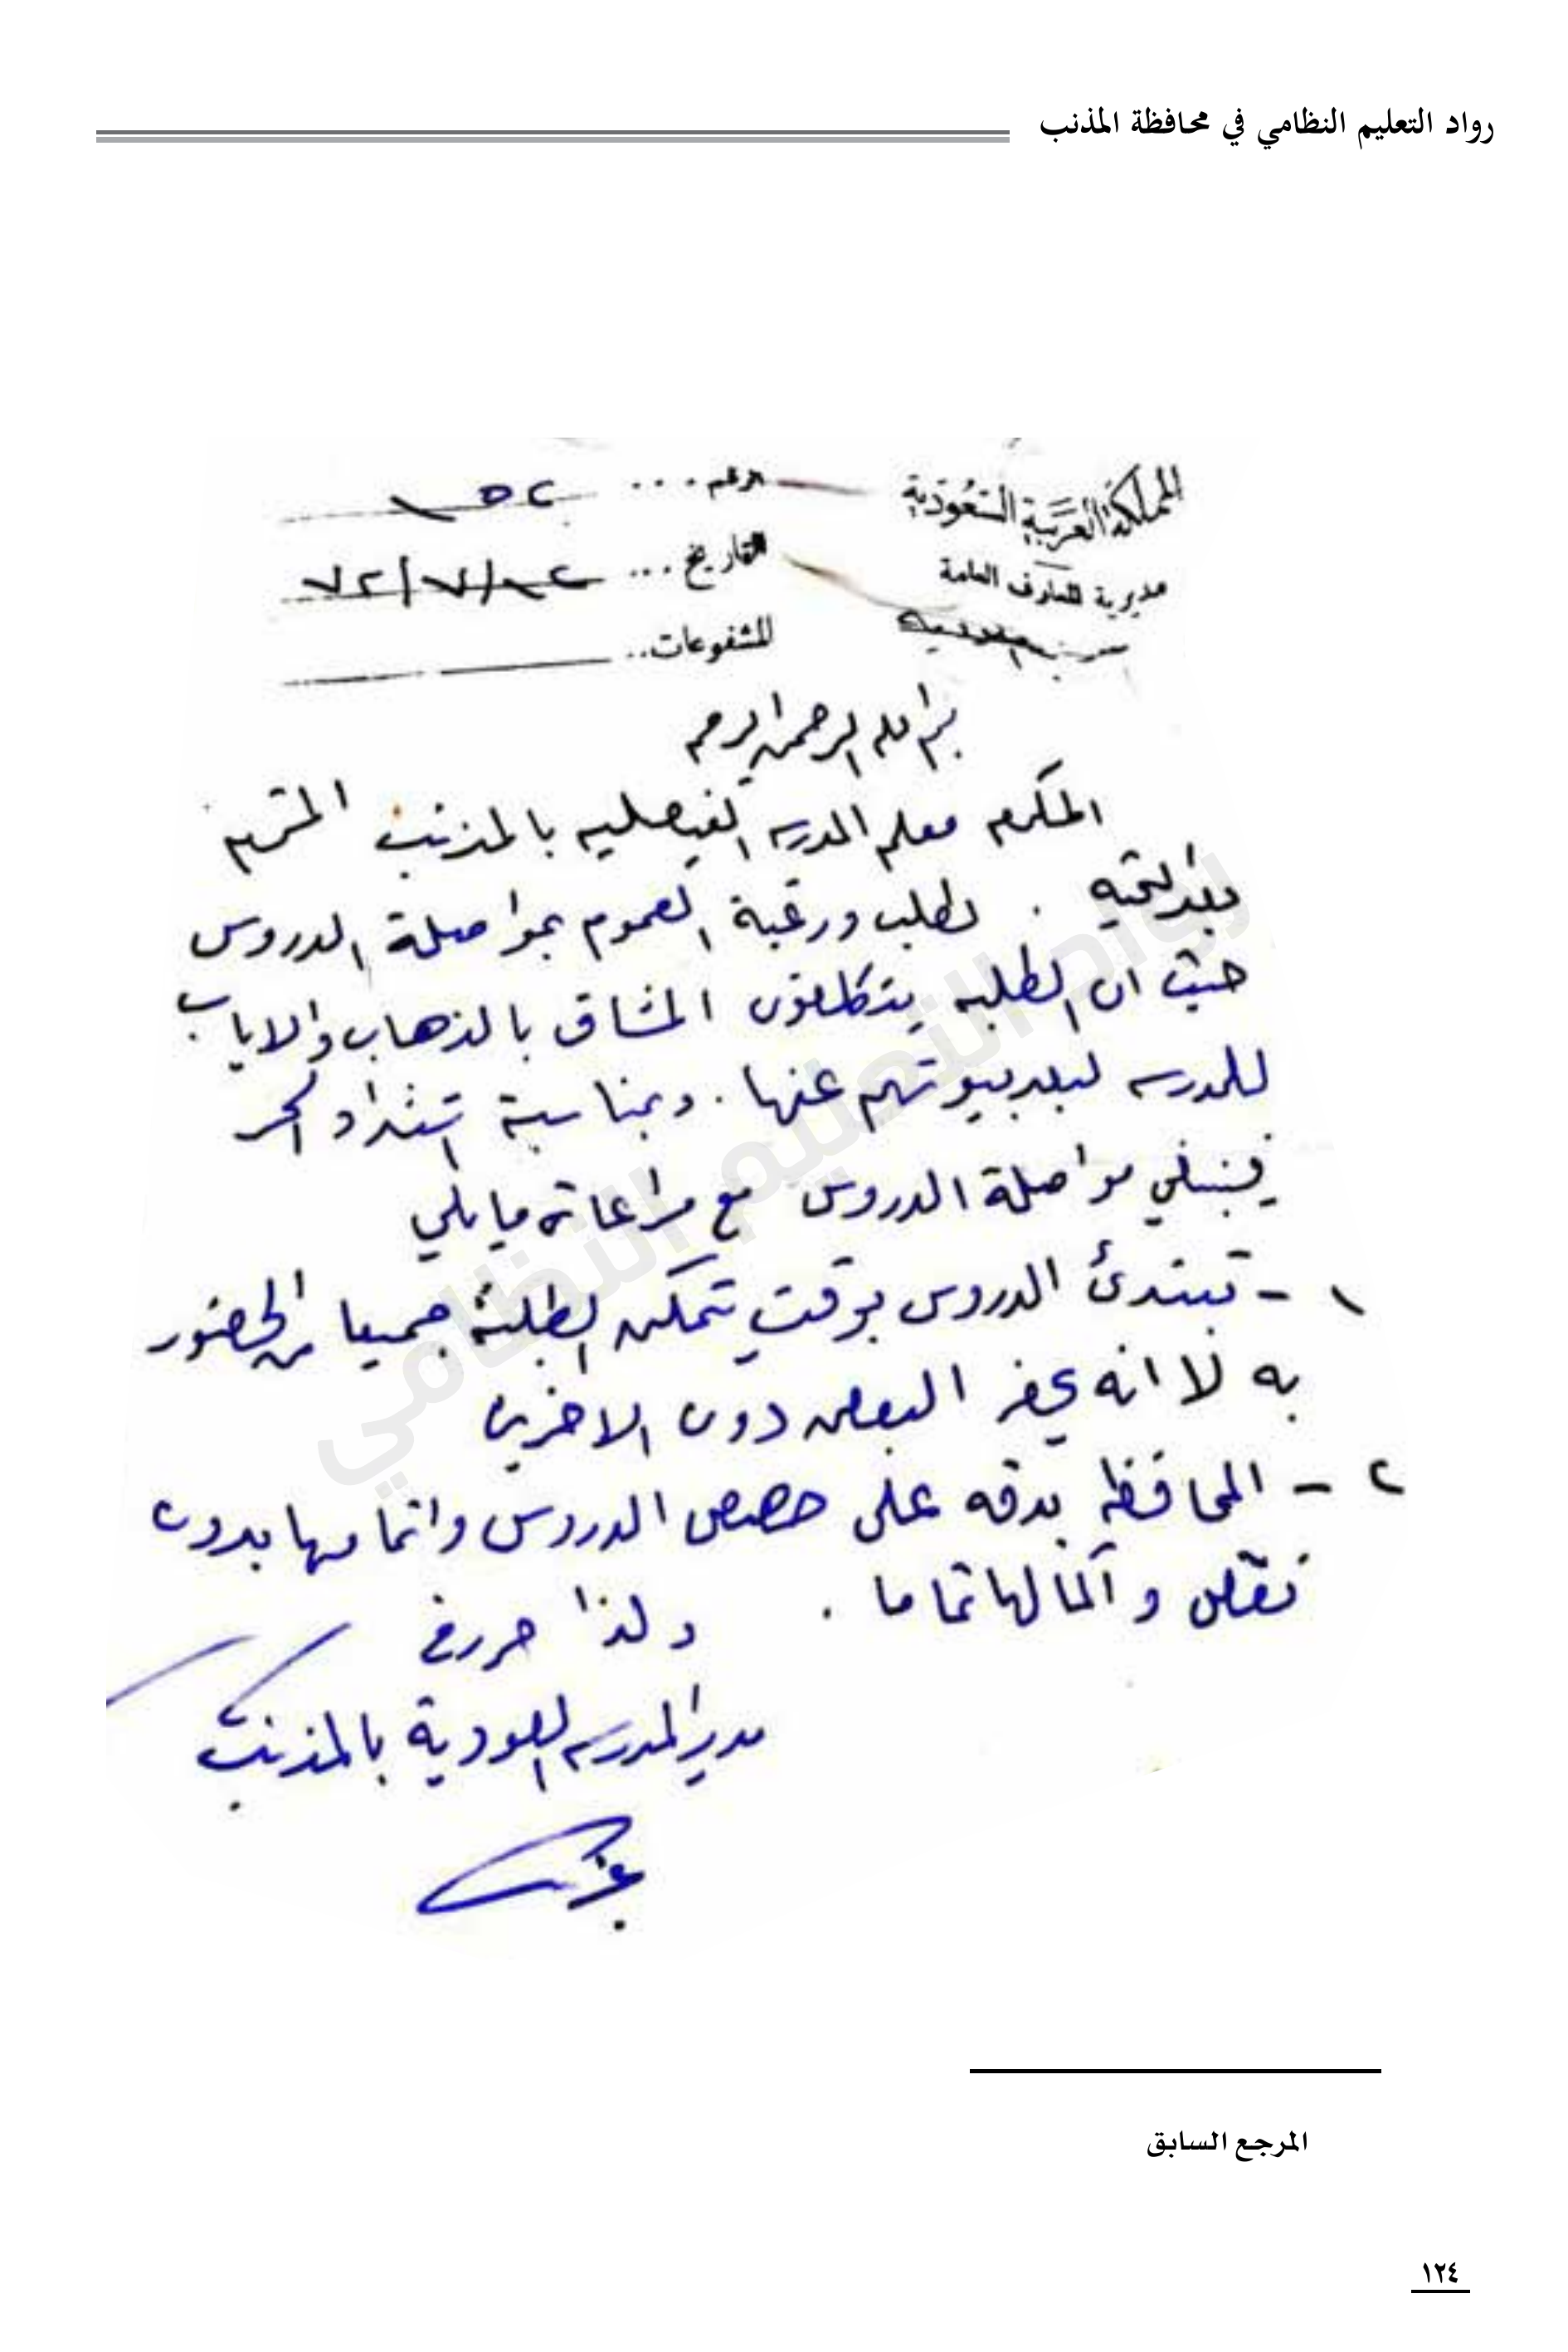 رواد التعليم النظامي في محافظة المذنب
المملكة العربية السعودية
مديرية المعارف العامة
الرقم ... ١٥٢
التاريخ ... ١٢/٧/٧٢
المشفوعات ..
بسم الله الرحمن الرحيم
المكرم معلم المدرسه الفيصليه بالمذنب المحترم
بعد التحيه . لطلب ورغبة العموم بمواصلة الدروس
حيث ان الطلبه يتكلفون المشاق بالذهاب والاياب
للمدرسه لبعد بيوتهم عنها . وبمناسبة اشتداد الحر
فينبغي مواصلة الدروس مع مراعاة ما يلي
١ - تبتدئ الدروس بوقت تتمكن الطلبة جميعا من الحضور
به لا انه يحضر البعض دون الاخرين
٢ - المحافظه بدقه على حصص الدروس واتمامها بدون
نقص واكمالها تماما . ولذا حرر في
مدير المدرسه السعودية بالمذنب
رواد التعليم النظامي
المرجع السابق
١٢٤